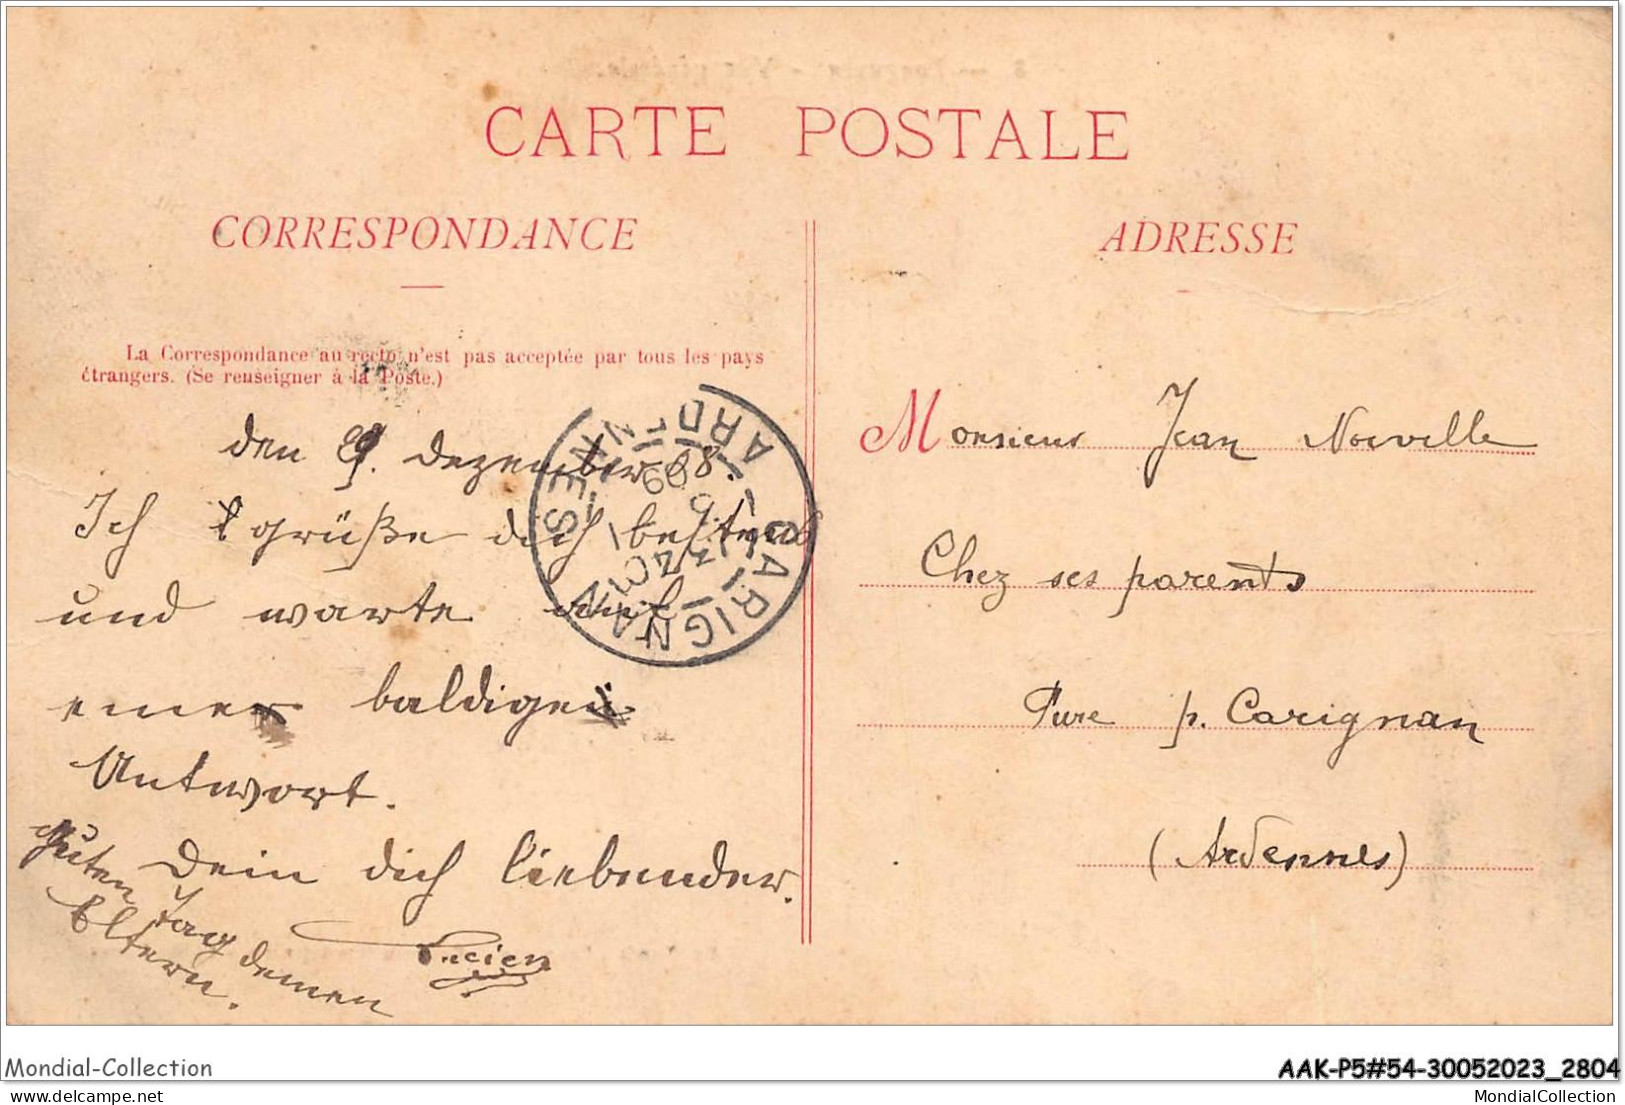 CARTE POSTALE
CORRESPONDANCE
La Correspondance au recto n'est pas acceptée par tous les pays
étrangers. (Se renseigner à la Poste.)
den 29. Dezember 08.
Ich grüße dich bestens
und warte auf
einer baldigen
Antwort.
Dein dich liebender.
Lucien
Guten Tag deinen
Eltern.
CARIGNAN
ARDENNES
09
ADRESSE
Monsieur Jean Norville
Chez ses parents
Pure p. Carignan
(Ardennes)
Mondial-Collection
AAK-P5#54-30052023_2804
delcampe.net
MondialCollection